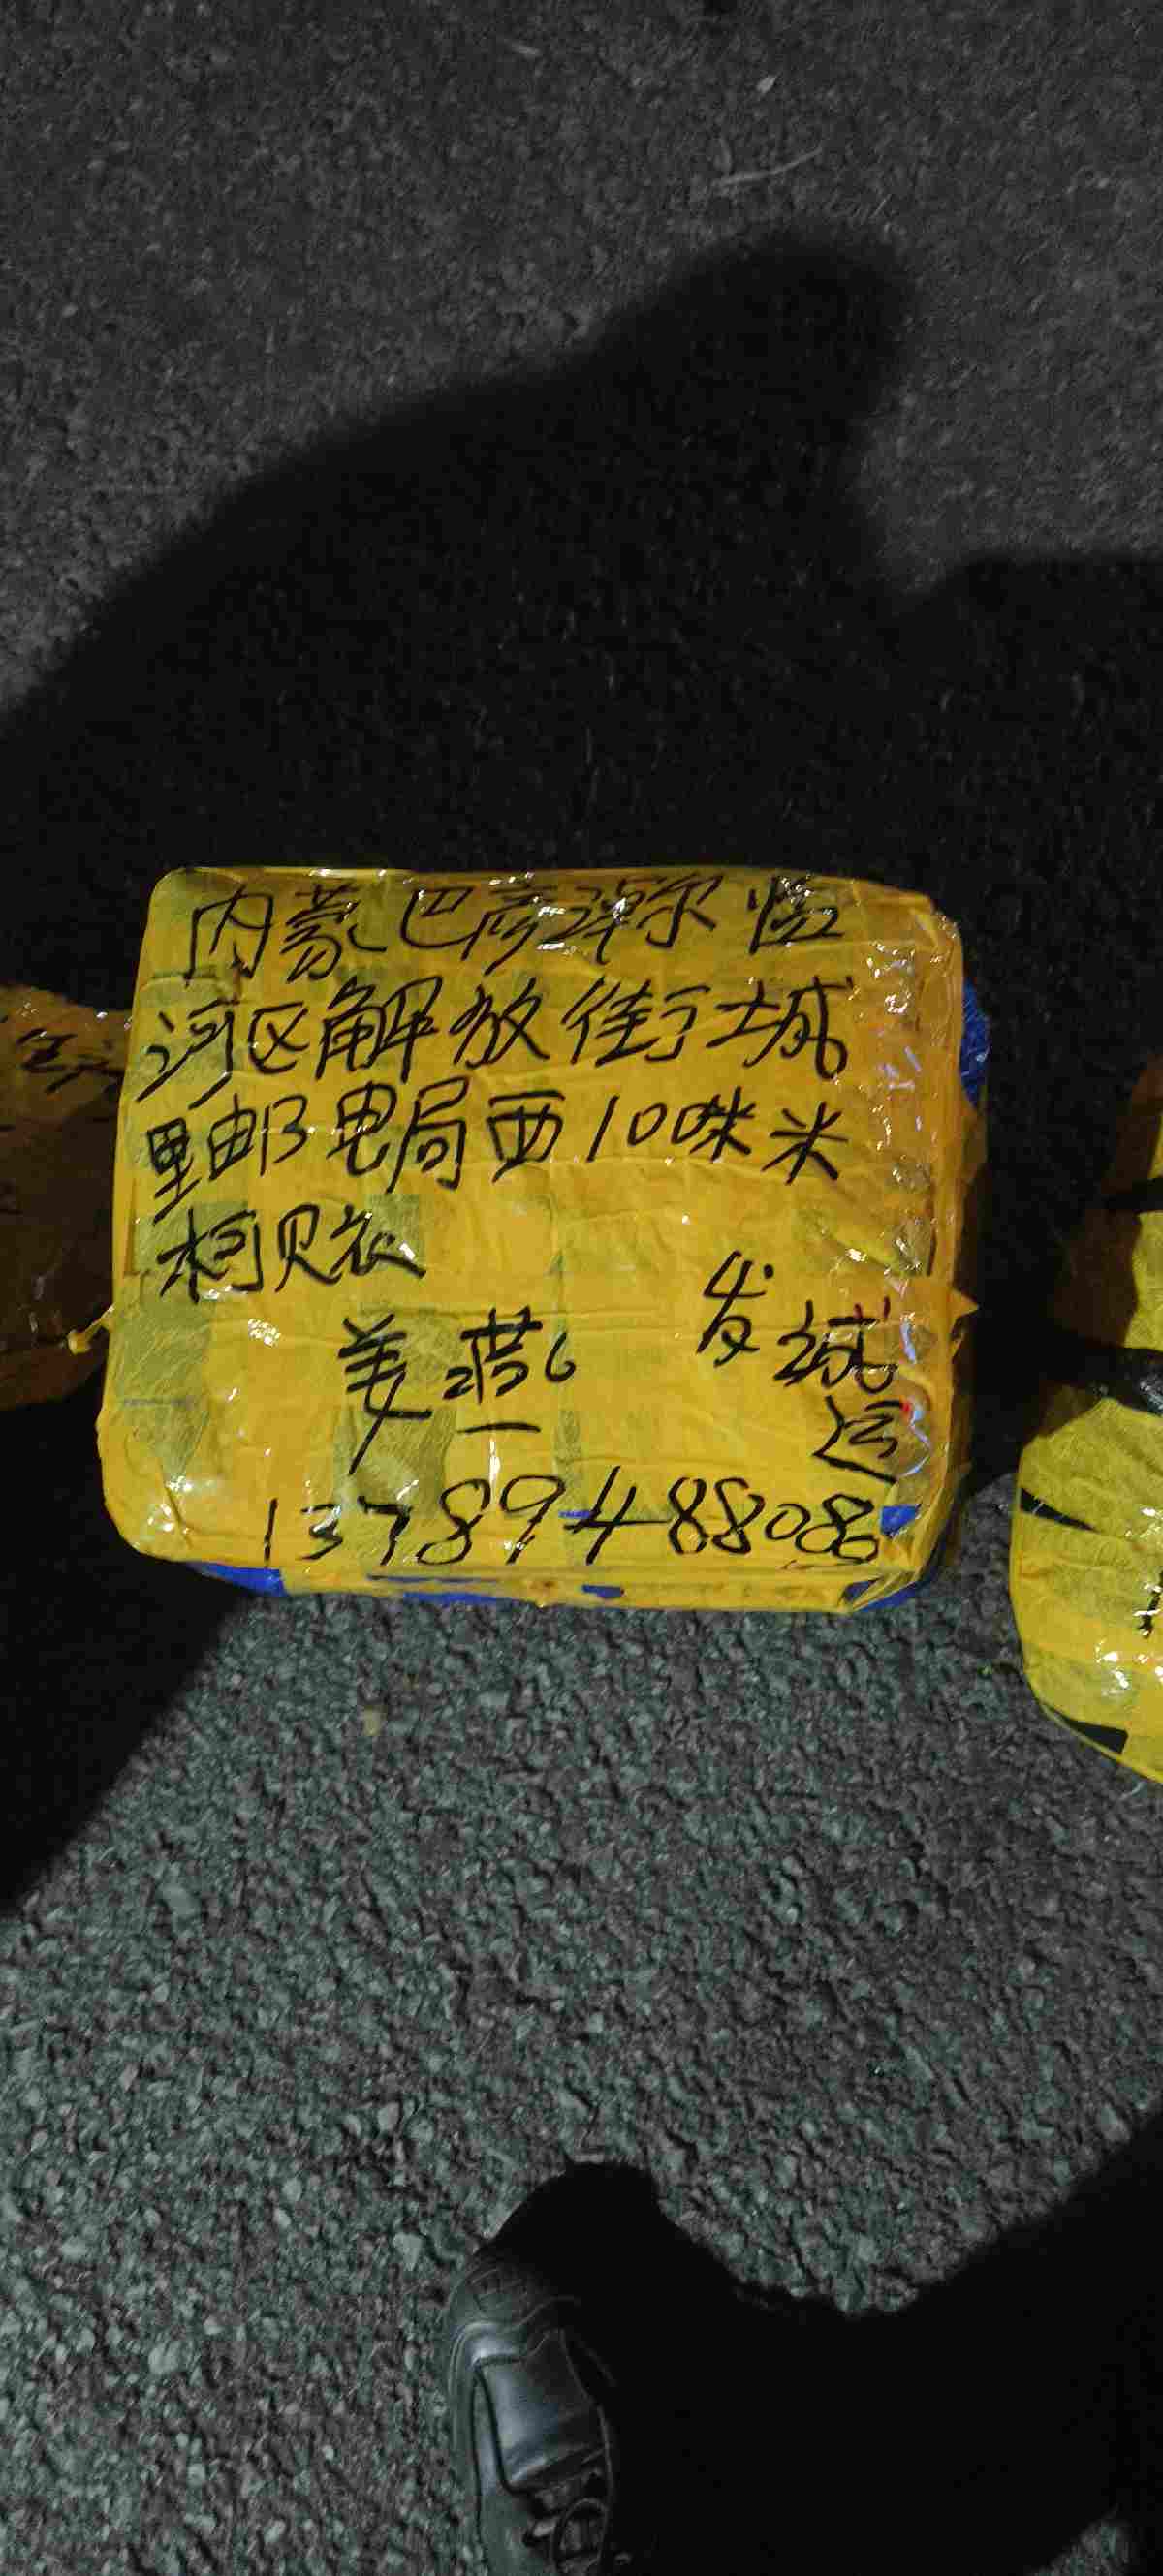 内蒙巴彦淖尔临
河区解放街城
里邮电局西100咪米
柯贝衣
姜燕
发城
运
13789488086